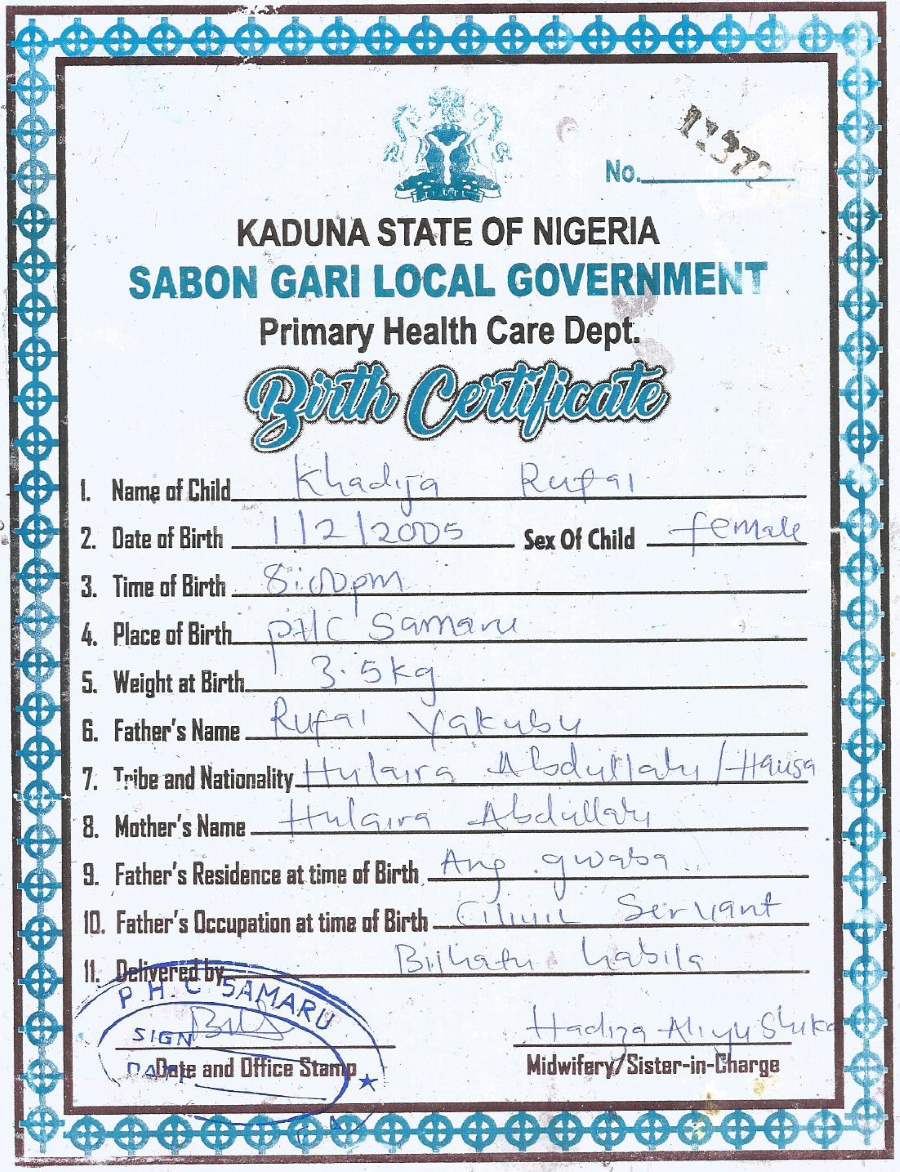 No. 11372
KADUNA STATE OF NIGERIA
SABON GARI LOCAL GOVERNMENT
Primary Health Care Dept.
Birth Certificate
1. Name of Child Khadija Rufai
2. Date of Birth 1/2/2005 Sex Of Child female
3. Time of Birth 8:00pm
4. Place of Birth PHC Samaru
5. Weight at Birth 3.5kg
6. Father's Name Rufai Yakubu
7. Tribe and Nationality Hulaira Abdullahi/Hausa
8. Mother's Name Hulaira Abdullahi
9. Father's Residence at time of Birth Ang gwaba
10. Father's Occupation at time of Birth Servant
11. Delivered by habila
P.H.C SAMARU
SIGN Hadiza Aliyu Shika
DATE
Date and Office Stamp Midwifery/Sister-in-Charge